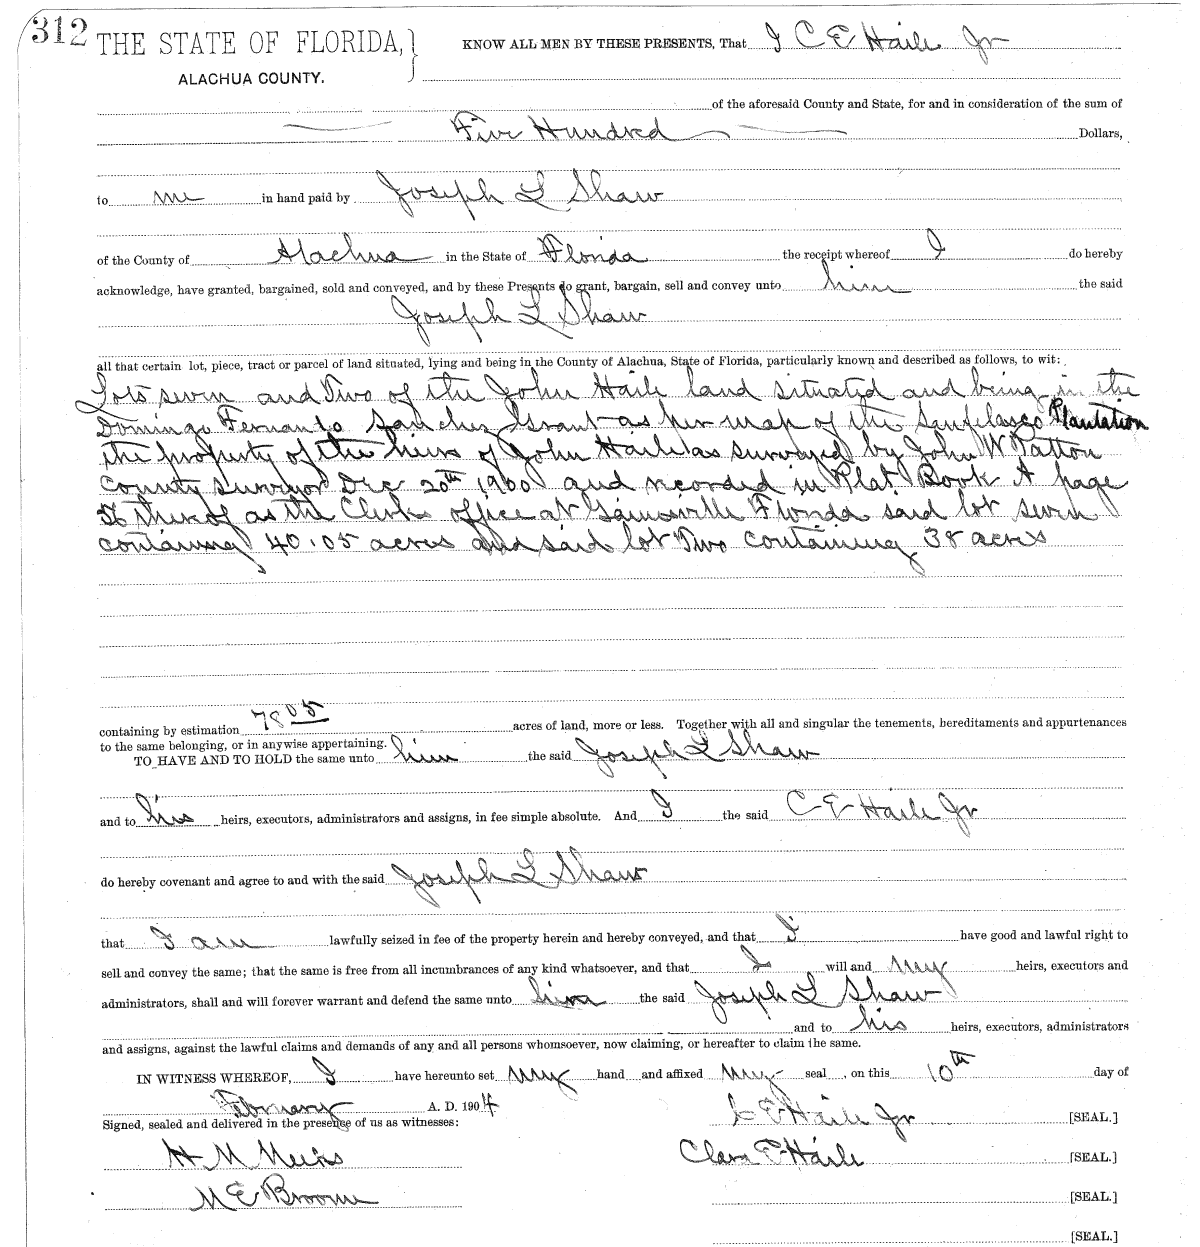 312
THE STATE OF FLORIDA,
ALACHUA COUNTY.
KNOW ALL MEN BY THESE PRESENTS, That I C E Haile Jr
of the aforesaid County and State, for and in consideration of the sum of
Five Hundred Dollars,
to me in hand paid by Joseph L Shaw
of the County of Alachua in the State of Florida the receipt whereof I do hereby
acknowledge, have granted, bargained, sold and conveyed, and by these Presents do grant, bargain, sell and convey unto him the said
Joseph L Shaw
all that certain lot, piece, tract or parcel of land situated, lying and being in the County of Alachua, State of Florida, particularly known and described as follows, to wit:
Lots seven and Two of the John Haile land situated and being in the
Domingo Fernando Sanchez Grant as per map of the Sanfelasco Plantation
the property of the heirs of John Haile as surveyed by John W Patton
County surveyor Dec 20th 1900 and recorded in Plat Book A page
56 thereof as the Clerks office at Gainesville Florida said lot seven
containing 40.05 acres and said lot Two containing 38 acres
containing by estimation 78 05 acres of land, more or less. Together with all and singular the tenements, hereditaments and appurtenances
to the same belonging, or in anywise appertaining.
TO HAVE AND TO HOLD the same unto him the said Joseph L Shaw
and to his heirs, executors, administrators and assigns, in fee simple absolute. And I the said C E Haile Jr
do hereby covenant and agree to and with the said Joseph L Shaw
that I am lawfully seized in fee of the property herein and hereby conveyed, and that I have good and lawful right to
sell and convey the same; that the same is free from all incumbrances of any kind whatsoever, and that I will and my heirs, executors and
administrators, shall and will forever warrant and defend the same unto him the said Joseph L Shaw
and to his heirs, executors, administrators
and assigns, against the lawful claims and demands of any and all persons whomsoever, now claiming, or hereafter to claim the same.
IN WITNESS WHEREOF, I have hereunto set my hand and affixed my seal, on this 10th day of
February A. D. 1904
Signed, sealed and delivered in the presence of us as witnesses:
C E Haile Jr [SEAL.]
H M Meeks
Clara E Haile [SEAL.]
M E Broome
[SEAL.]
[SEAL.]